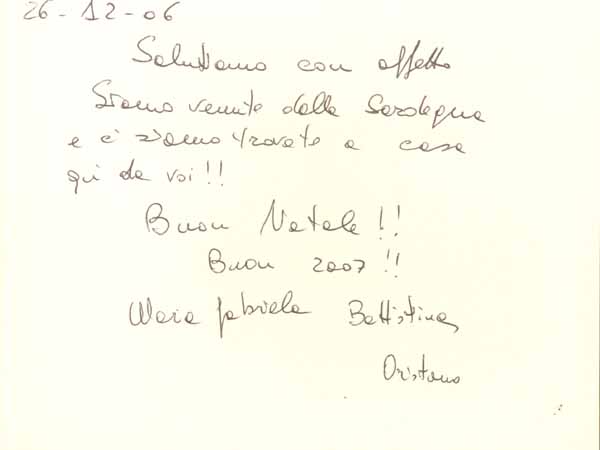 26-12-06
Salutiamo con affetto
Siamo venute dalla Sardegna
e ci siamo trovate a casa
qui da voi!!
Buon Natale!!
Buon 2007!!
Maria Gabriela Battistina,
Oristano